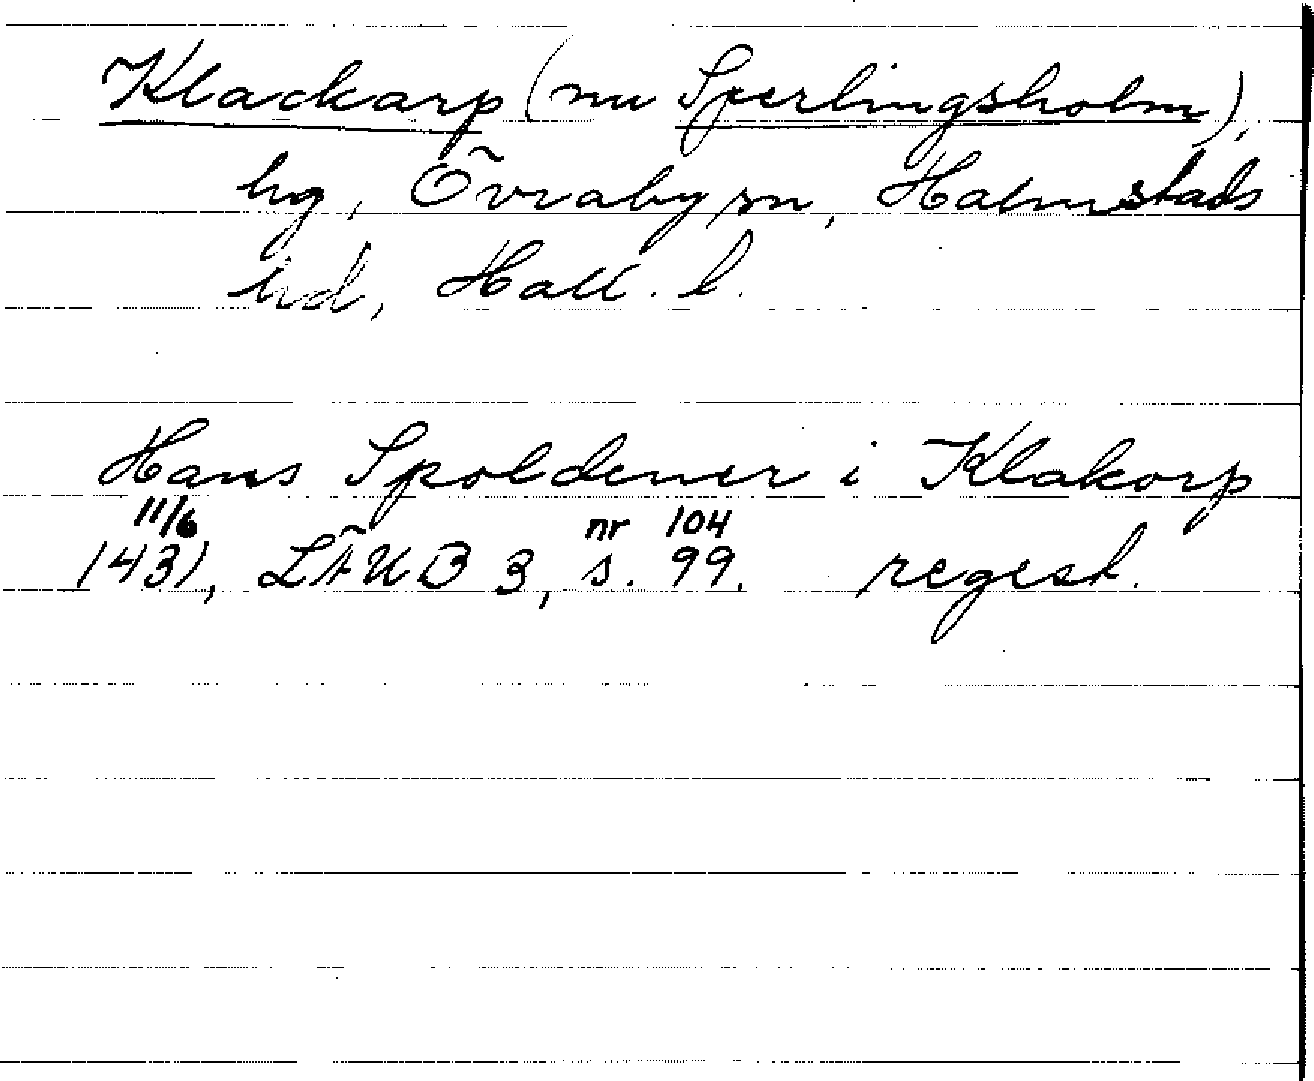 Klackarp (nu Sperlingsholm),
hg, Övraby sn, Halmstads
hd, Hall. l.
Hans Spoldener i Klakorp
11/6 nr 104
1431, LÄUB 3, s. 99. regest.